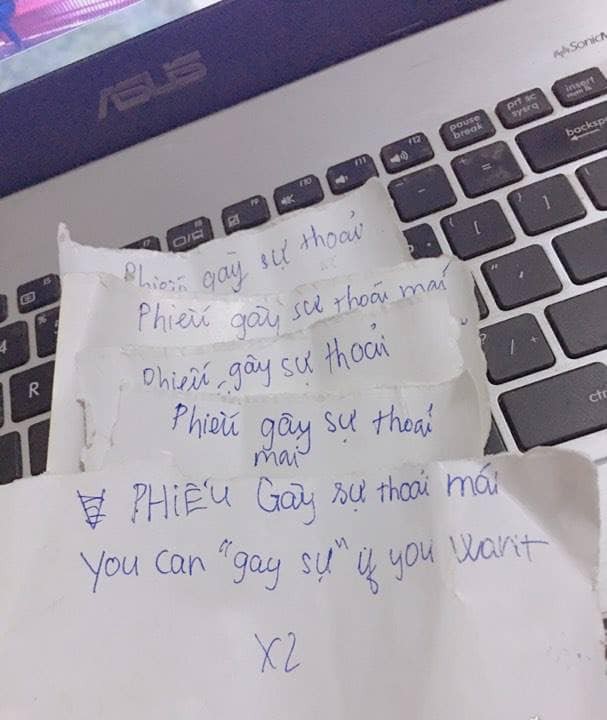 ASUS
SonicM
F12
pause
break
prt sc
sysrq
insert
backsp
F11
F10
F9
R
ctr
Phiếu gây sự thoải
Phiếu gây sự thoải mái
Phiếu gây sự thoải
Phiếu gây sự thoải
mái
PHIẾU Gây sự thoải mái
You can "gay sự" if you want
X2